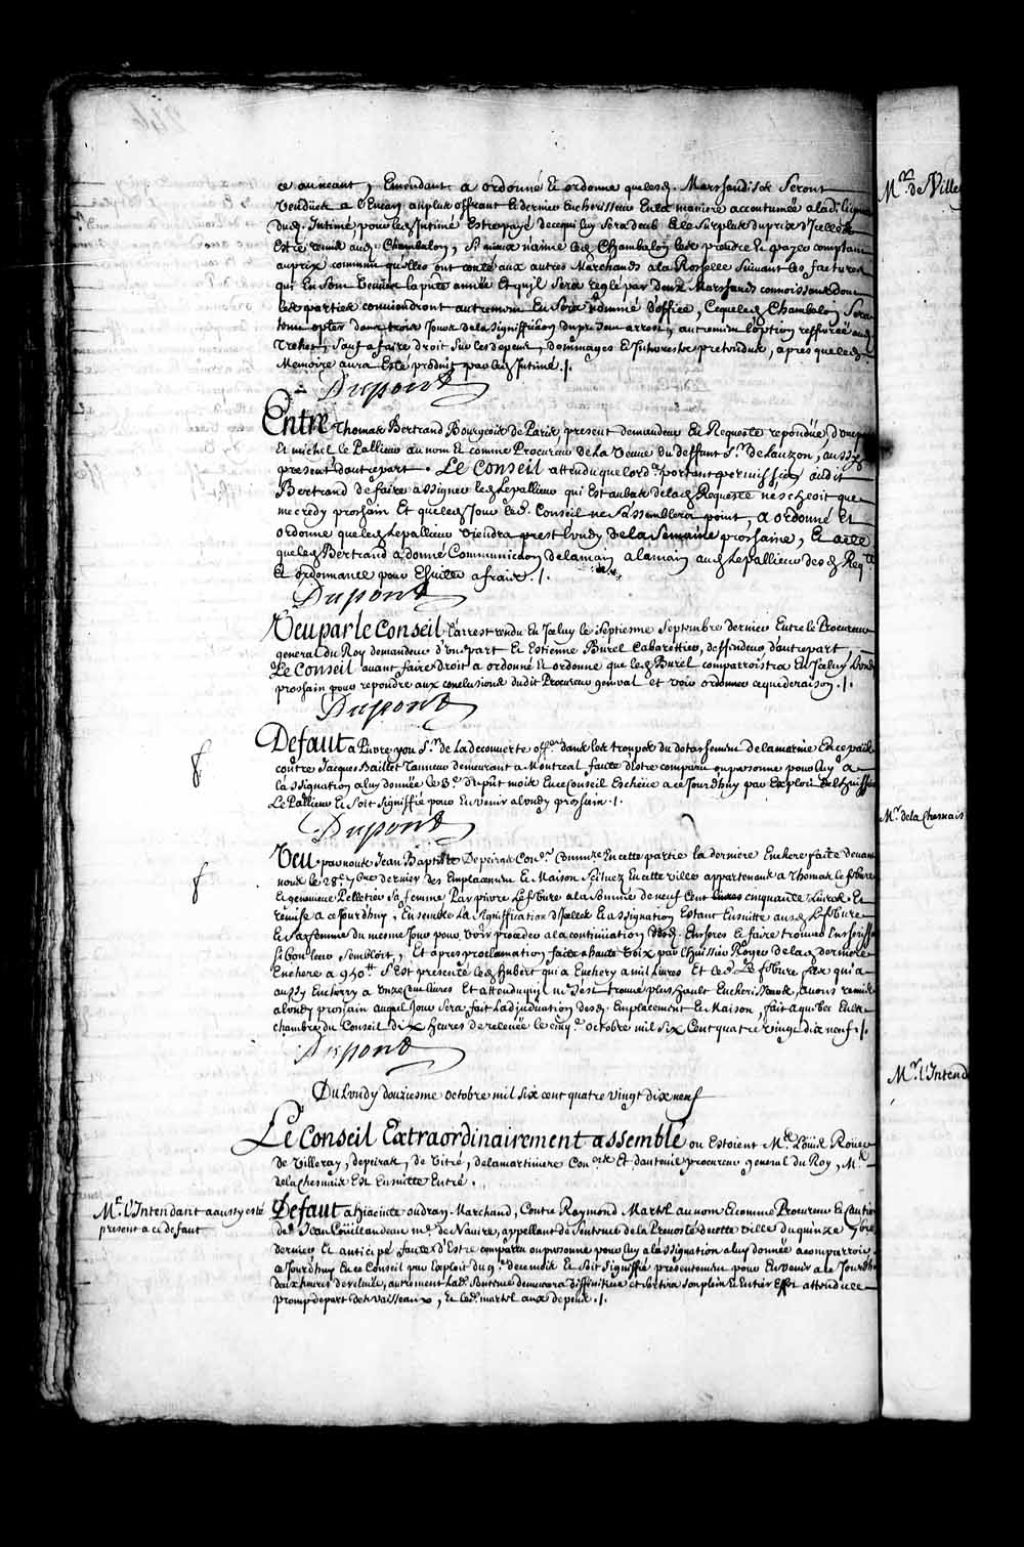 ce au neant, Emendant a ordonné et ordonne que lesd. Marchandises Seront
Vendües a l'Encan au plus offrant et dernier Encherisseur En la maniere accoutumée a la dilig.
dud. Intimé, pour led. Intimé Estre payé de ce qui luy Sera deub Et le Surplus du prix d'Icelles
Estre remis aud. Chambalon, Si mieux n'aime led. Chambalon les prendre Et payer comptant
au prix commun qu'elles ont couté aux autres Marchands a la Rochelle Suivant les factures
qui En Sont Venües la pnte année Et qu'il Sera reglé par deux Marchands connoissans dont
les parties conviendront autrement En Sera nommé d'office, Ce que led. Chambalon Sera
tenu opter dans trois Jours de la Signiffication du pnt Jour arrest, autrement l'option refferée aud.
Sauf a faire droit Sur les depens, dommages et Interests pretendus, apres que led.
Memoire aura Esté produit par led. Intimé ./.
Dupont
Entre Thomas Bertrand Bourgeois de Paris present demandeur En Requeste repondüe, d'une part
Et michel le Pallieur au nom Et comme Procureur de la Veuve du deffunt S.r de Lauzon, aussy
present d'autre part. Le Conseil attendu que l'ord.ce portant permission audit
Bertrand de faire assigner led. Lepallieur qui Est au bas de lad. Requeste ne Escheoit que
mecredy prochain Et que led. Jour le d. Conseil ne S'assemblera point, a ordonné Et
ordonne que led. Lepallieur Viendra prest lundy de la Semaine prochaine, Et a cette
que led. Bertrand a donné Communic.on de la main a la main aud. Lepallieur des d. Req.te
Et ordonnance pour Ensuitte a fraix ./.
Dupont
Veu par le Conseil l'arrest rendu En Iceluy le Septiesme Septembre dernier Entre le Procureur
general du Roy demandeur d'une part Et Estienne Burel Cabarettier, deffendeur d'autre part,
Le Conseil avant faire droit a ordonné Et ordonne que led. Burel comparroistra En Iceluy Lundy
prochain pour repondre aux conclusions dudit Procureur general et voir ordonner ce que de raison ./.
Dupont
Defaut a Pierre you S.r de la decouverte off.er dans les troupes du detachement de la marine En ce païs
contre Jacques Baillet Tanneur demeurant a Montreal faute d'Estre comparu ou personne pour luy a
la assignation a luy donnée le 3.e du pnt mois En ce Conseil Escheüe a ce Jourd'huy par Exploit de l'huissier
Le Pallieur Et Soit Signiffié pour En venir a lundy prochain ./.
Dupont
Veu par nous Jean Baptiste Depeiras Con.er Commre En cette partie la derniere Enchere faite devant
nous le 28.e 7bre dernier des Emplacement Et Maison Scituez En cette ville appartenans a Thomas le febure
Et genevieve Pelletier Sa femme Par pierre Lefebure a la Somme de neuf Cent livres cinquante Livres Et
remise a ce Jourd'huy, Ensemble la Signiffication d'Icelles Et assignation Estant Ensuitte aud. Lefebure
Et Sa femme du mesme Jour pour Voir proceder a la continuation desd. Encheres Et faire trouver Encherisseurs
Si bon leur Sembloit, Et apres proclamation faite a haute Voix par l'huissier Roger de lad. derniere
Enchere a 950.tt S'Est presenté led. Hubert qui a Enchery a mil livres Et led. Le febure qui a
aussy Enchery a Unze Cent livres Et attendu qu'il ne S'est trouvé plus hault Encherisseur, avons remis
a lundy prochain auquel Jour Sera fait l'adjudication desd. Emplacement Et Maison, fait a quebec En la
chambre du Conseil dix heures de relevée le cinq.e octobre mil six Cent quatre vingt dix neuf ./.
Dupont
Du Lundy douziesme octobre mil Six cent quatre vingt dix neuf
Le Conseil Extraordinairement assemblé ou Estoient M.rs Loüis Roüer
de Villeray, depeiras, de Vitré, delamartiniere Con.ers Et dauteuil procureur general du Roy, M.r
de la Chesnaie Est Ensuitte Entré.
M.r l'Intendant a aussy esté
present a ce defaut
Defaut a Hiacinte oudran Marchand, Contre Raymond Martel au nom Et comme Procureur Et Caution
de Jean Coüillandeau m.e de Navire, appellant de Sentence de la Prevosté de cette ville du quinze 7bre
dernier Et anticipé faute d'Estre comparu ou personne pour luy a la assignation a luy donnée a comparroir
a Jourd'huy En ce Conseil par Exploit du 9.e de ce mois Et Soit Signiffié presentement pour En venir a ce Jourd'huy
deux heures de relevée, autrement lad. Sentence demeurera diffinitive et Sortira Son plein Et Entier Effet attendu le
prompt depart des vaisseaux, Et led. martel aux depens ./.
M.rs de Ville
M.r de la Chesnais
M.r l'Intend